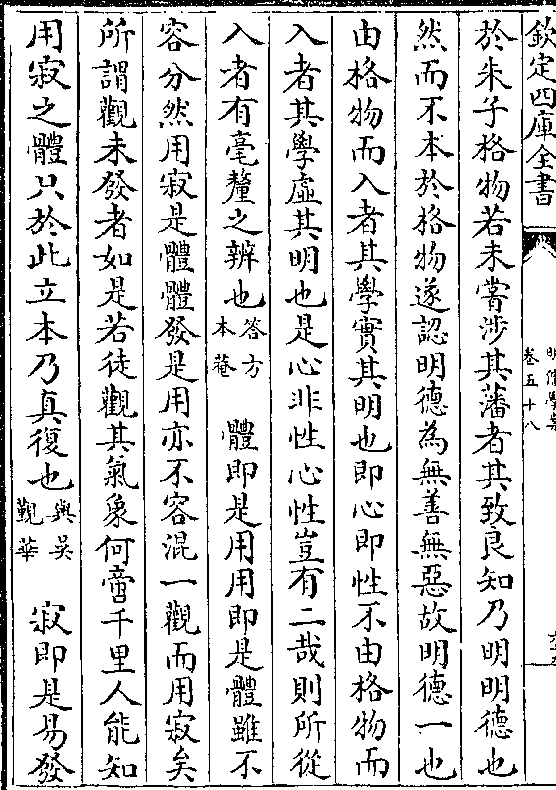 欽定四庫全書
明儒學案
卷五十八
於朱子格物若未嘗涉其藩者其致良知乃明明德也
然而不本於格物遂認明德為無善無惡故明德一也
由格物而入者其學實其明也即心即性不由格物而
入者其學虛其明也是心非性心性豈有二哉則所從
入者有毫釐之辨也答方本菴 體即是用用即是體雖不
容分然用寂是體體發是用亦不容混一觀而用寂矣
所謂觀未發者如是若徒觀其氣象何啻千里人能知
用寂之體只於此立本乃真復也與吳覲華 寂即是易發